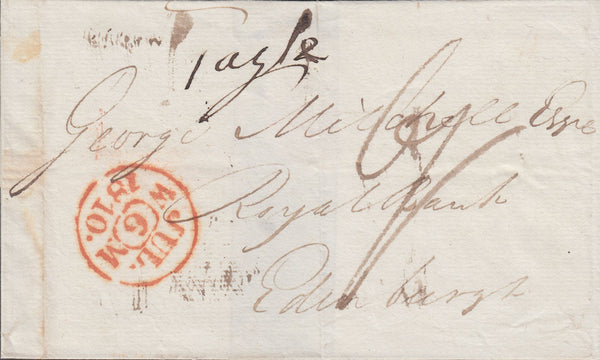 Tayle
George Mitchell Esqr
Royal Bank
Edinburgh
JUL.
W 6 M
1810.